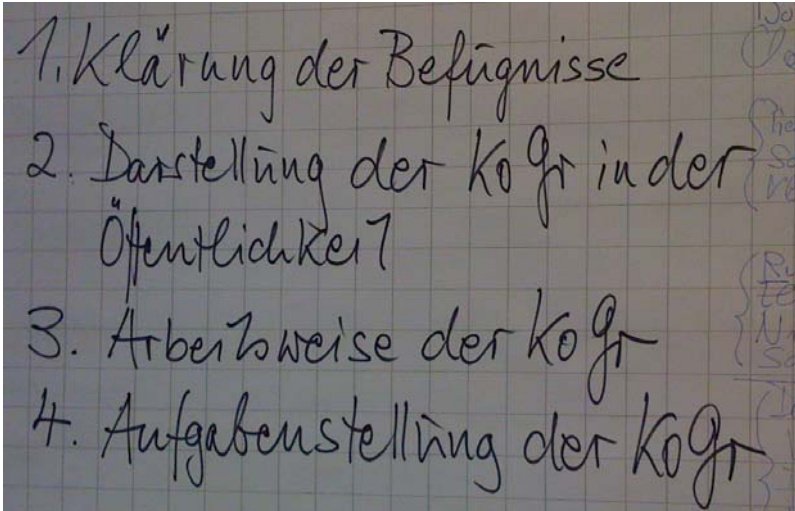 1. Klärung der Befugnisse
2. Darstellung der KoGr in der
Öffentlichkeit
3. Arbeitsweise der KoGr
4. Aufgabenstellung der KoGr